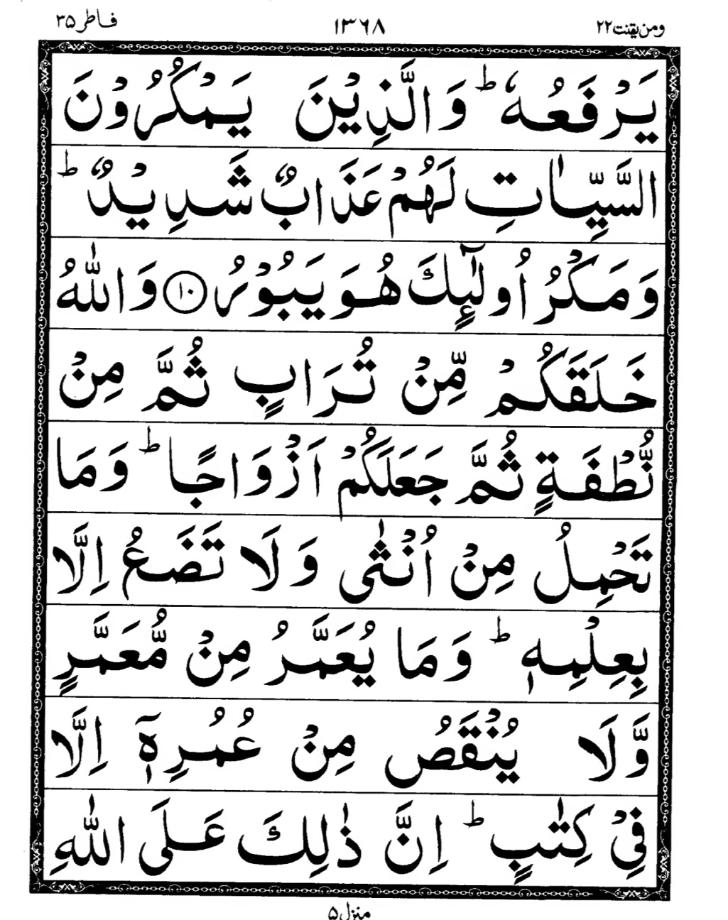 ومن یقنت ۲۲ ۱۳۶۸ فاطر ۳۵
يَرْفَعُهٗ ؕ وَ الَّذِيْنَ يَمْكُرُوْنَ
السَّيِّاٰتِ لَهُمْ عَذَابٌ شَدِيْدٌ ؕ
وَ مَكْرُ اُولٰٓئِكَ هُوَ يَبُوْرُ ۝۱۰ وَ اللّٰهُ
خَلَقَكُمْ مِّنْ تُرَابٍ ثُمَّ مِنْ
نُّطْفَةٍ ثُمَّ جَعَلَكُمْ اَزْوَاجًا ؕ وَ مَا
تَحْمِلُ مِنْ اُنْثٰى وَ لَا تَضَعُ اِلَّا
بِعِلْمِهٖ ؕ وَ مَا يُعَمَّرُ مِنْ مُّعَمَّرٍ
وَّ لَا يُنْقَصُ مِنْ عُمُرِهٖٓ اِلَّا
فِيْ كِتٰبٍ ؕ اِنَّ ذٰلِكَ عَلَى اللّٰهِ
منزل ۵